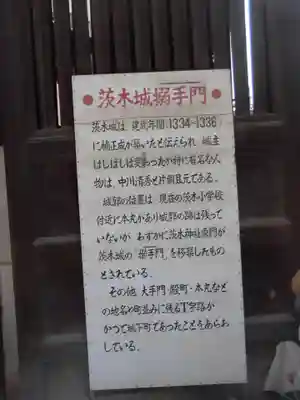 ●茨木城搦手門●
茨木城は、建武年間(1334〜1336)
に楠正成が築いたと伝えられ 城主
はしばしば変わったが特に有名な人
物は、中川清秀と片桐且元である。
城郭の位置は 現在の茨木小学校
付近に本丸があり城郭の跡は残って
いないが わずかに茨木神社東門が
茨木城の「搦手門」を移築したもの
とされている。
その他 大手門・殿町・本丸など
の地名や町並みに残るT字路が
かつて城下町であったことをあらわ
している。